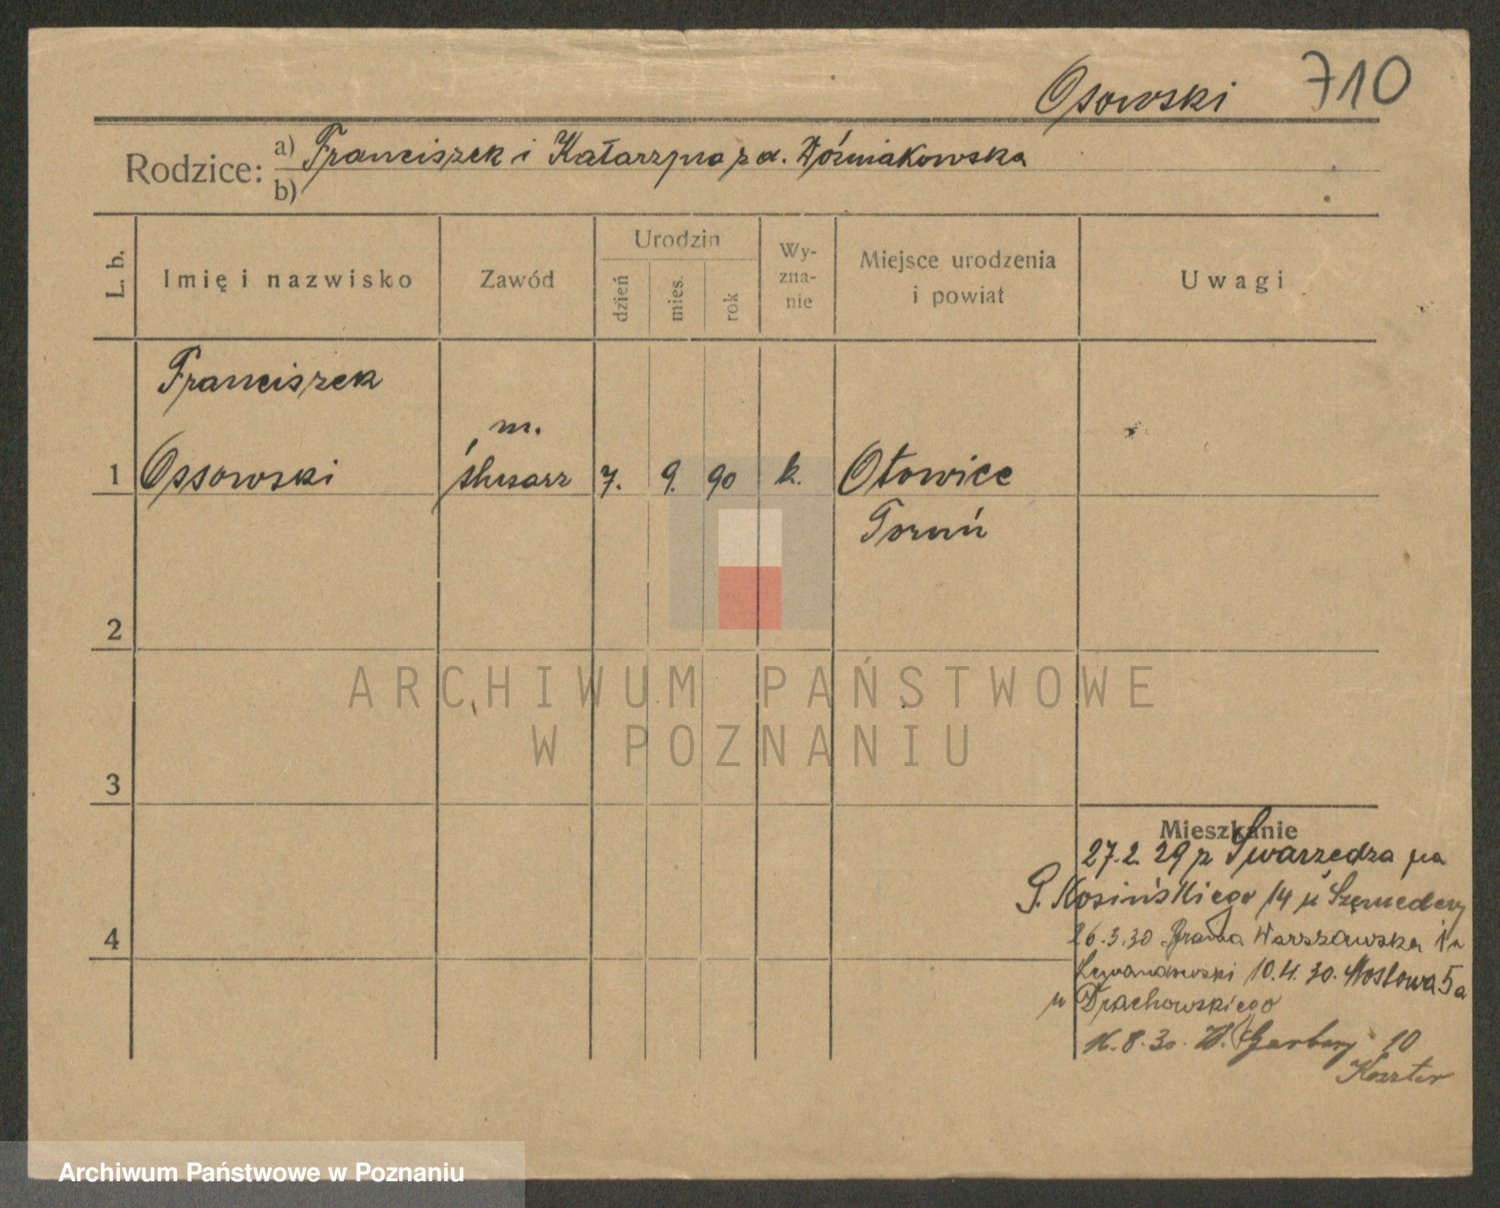 Osowski 710
Rodzice: a) Franciszek i Katarzyna z d. Woźniakowska
b)
L. b. Imię i nazwisko Zawód Urodzin dzień mies. rok Wyznanie Miejsce urodzenia i powiat Uwagi
Franciszek
m.
1 Ossowski ślusarz 7. 9. 90 k. Otowice
Toruń
2
ARCHIWUM PAŃSTWOWE
W POZNANIU
3
Mieszkanie
27.2. 29 z Swarzędza na
G. Kosińskiego 14 u
4
26.3.30 Brama Warszawska 1a
Lewandowski 10.4.30. Mostowa 5a
u Drachowskiego
16.8.30. W. Garbary 10
Archiwum Państwowe w Poznaniu